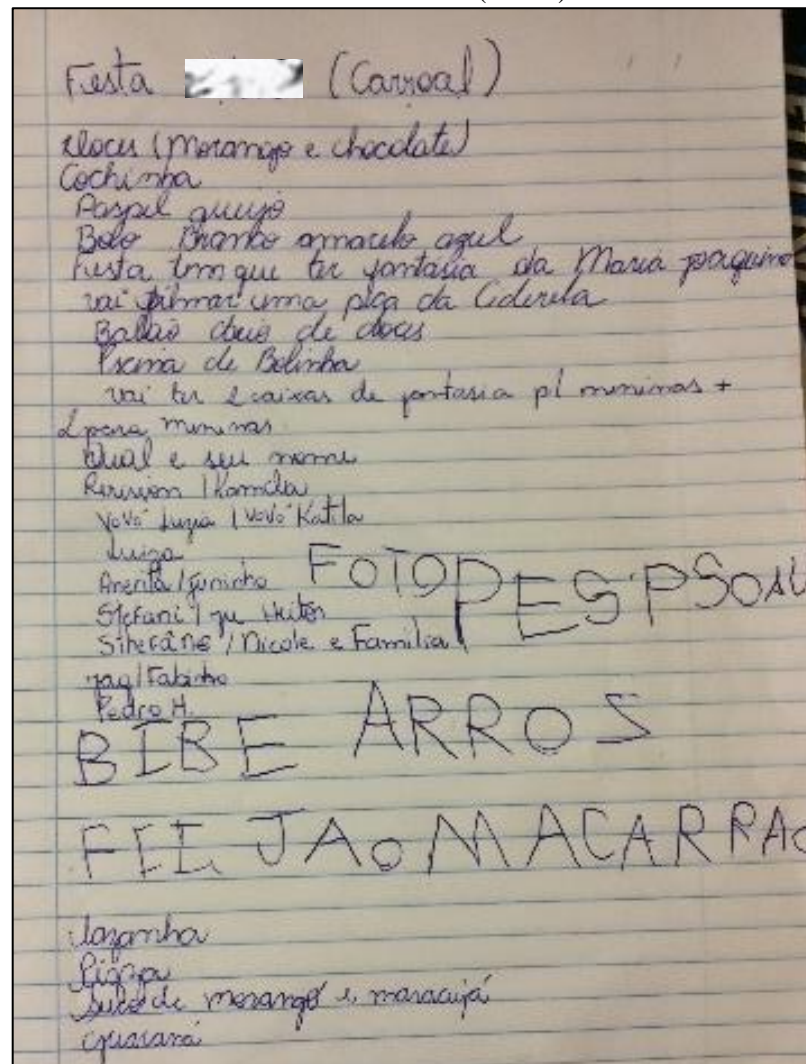 Festa (Carroal)
doces (morango e chocolate)
Cochinha
Paspel queijo
Bolo Branco amarelo azul
Festa tem que ter fantasia da Maria
vai filmar uma pça da Ciderela
Balão cheio de doces
de Bolinha
vai ter 2 caixas de fantasia p/ meninas +
2 para meninos
Qual e seu nome
/
Vovó Luzia / Vovó Katila
Luiza
/ Juninho
FOTO PES PSOAU
Stefani / Heitor
/ Nicole e Familia
Jaq / Fabinho
Pedro H.
BIBE ARROS
FEIJAO MACARRAO
lazanha
Pizza
Suco de morango e maracujá
guaraná